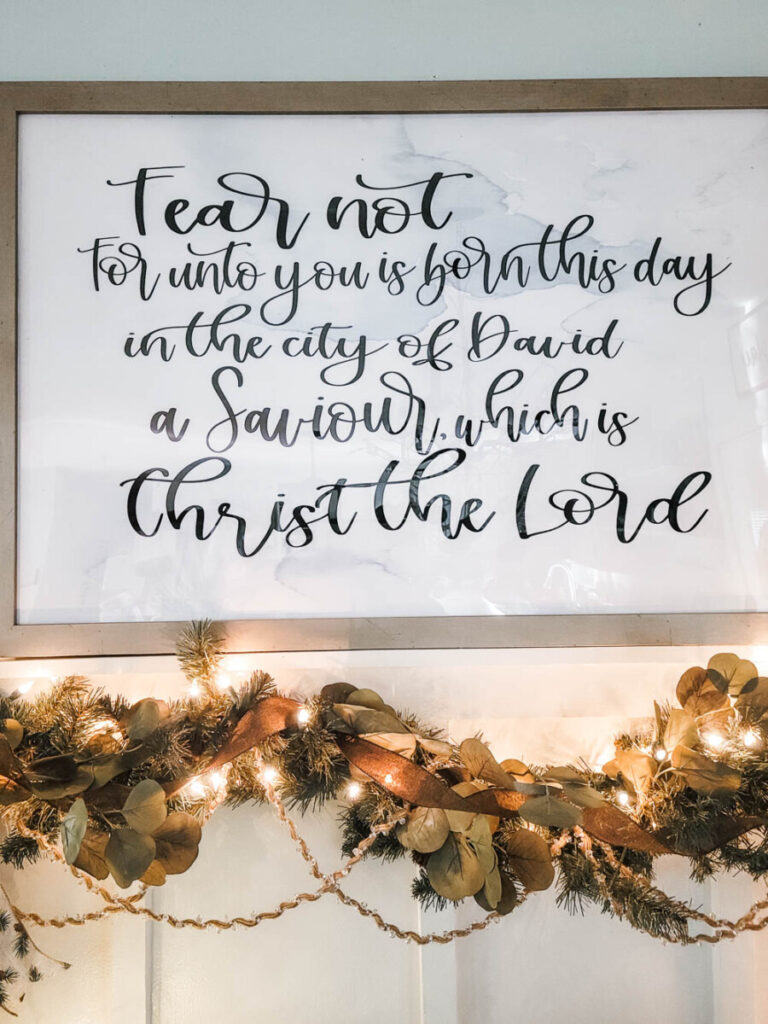 Fear not
For unto you is born this day
in the city of David
a Saviour, which is
Christ the Lord